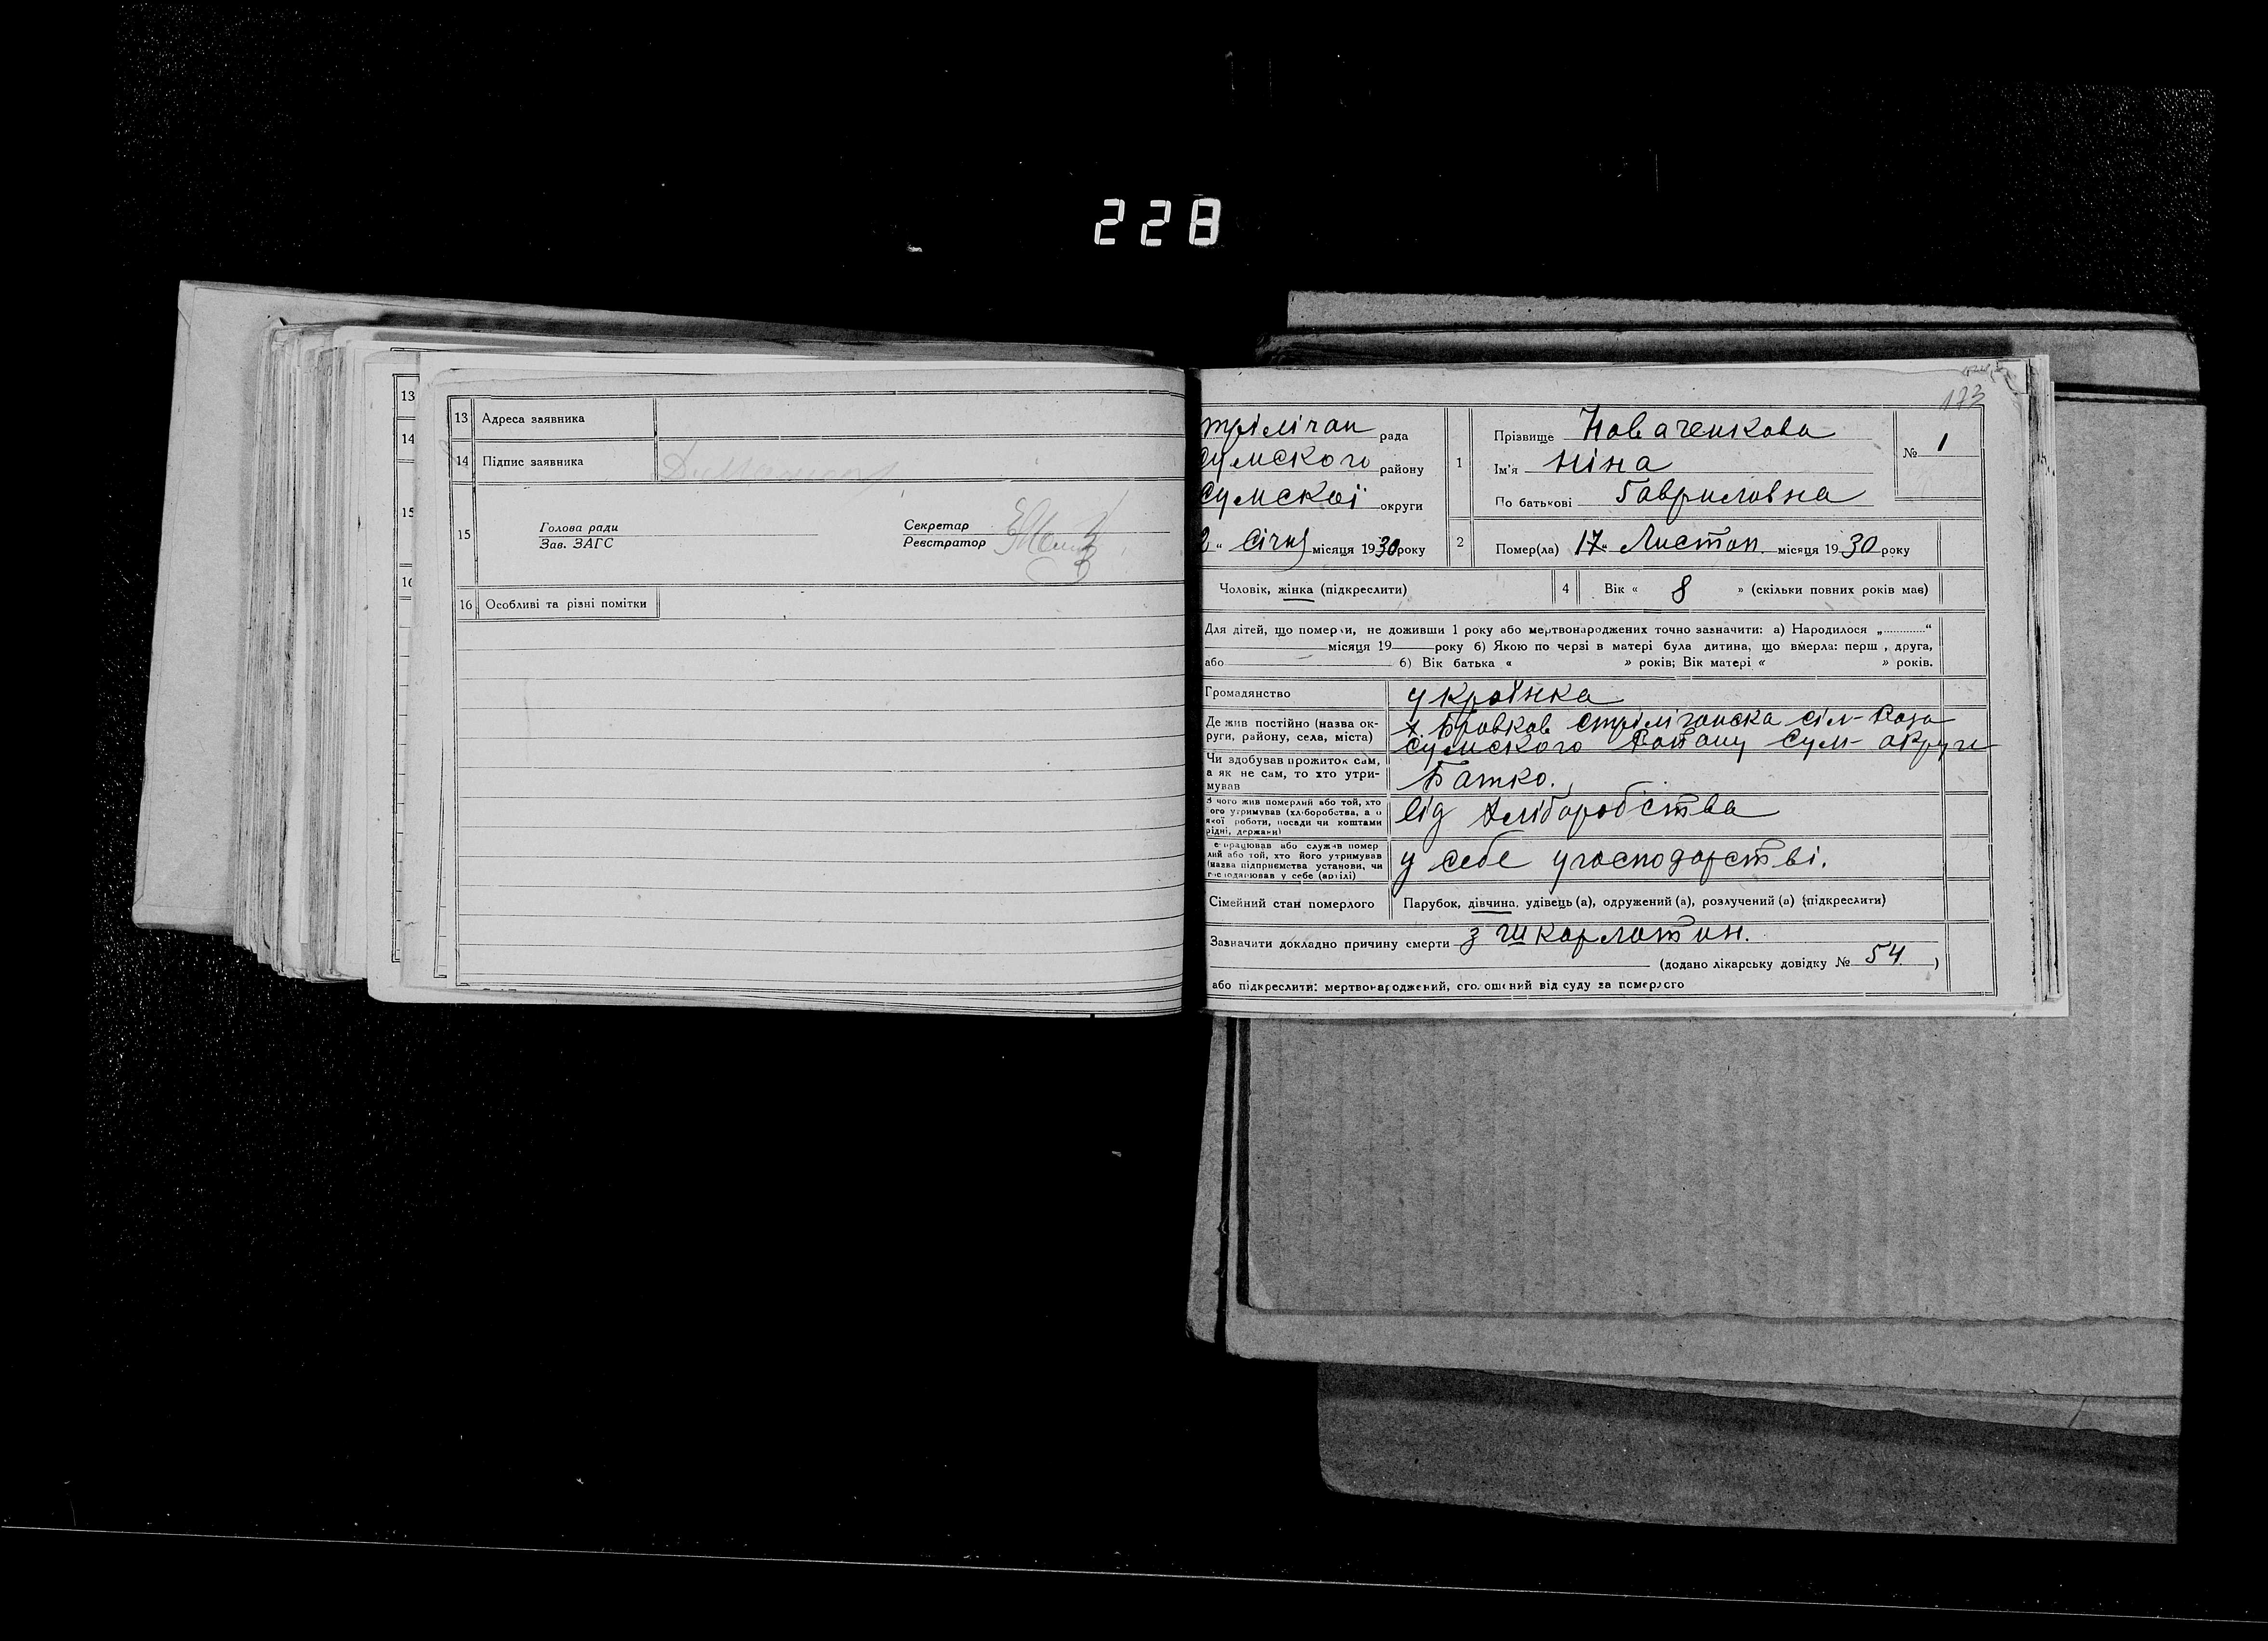 228
13
14
15
16
13 Адреса заявника
14 Підпис заявника
15 Голова ради
Зав. ЗАГС
Секретар
Реєстратор
16 Особливі та різні помітки
173
трілічан рада
Сумского району
Сумскої округи
2 " Січня місяця 1930 року
1 Прізвище Новаченкова
Ім'я Ніна
По батькові Гавриловна
№ 1
2 Помер(ла) 17 " Листоп. місяця 1930 року
Чоловік, жінка (підкреслити)
4 Вік « 8 » (скільки повних років має)
Для дітей, що померли, не доживши 1 року або мертвонароджених точно зазначити: а) Народилося „............“
місяця 19 року б) Якою по черзі в матері була дитина, що вмерла: перш , друга,
або б) Вік батька « » років; Вік матері « » років.
Громадянство українка
Де жив постійно (назва ок-
руги, району, села, міста)
х. Бровков Стрілічанска сіл-Рада
Сумского Району Сум- округи
Чи здобував прожиток сам,
а як не сам, то хто утри-
мував
Батко.
З чого жив померлий або той, хто
ого утримував (хліборобства, а о
якої роботи, посади чи коштами
рідні, держави)
від хліборобства
е працював або служив помер
лий або той, хто його утримував
(назва підприємства установи, чи
господарював у себе (артілі)
у себе у господарстві.
Сімейний стан померлого Парубок, дівчина, удівець (а), одружений (а), розлучений (а) (підкреслити)
Зазначити докладно причину смерти з шкарлатин.
(додано лікарську довідку № 54 )
або підкреслити: мертвонароджений, оголошений від суду за померлого